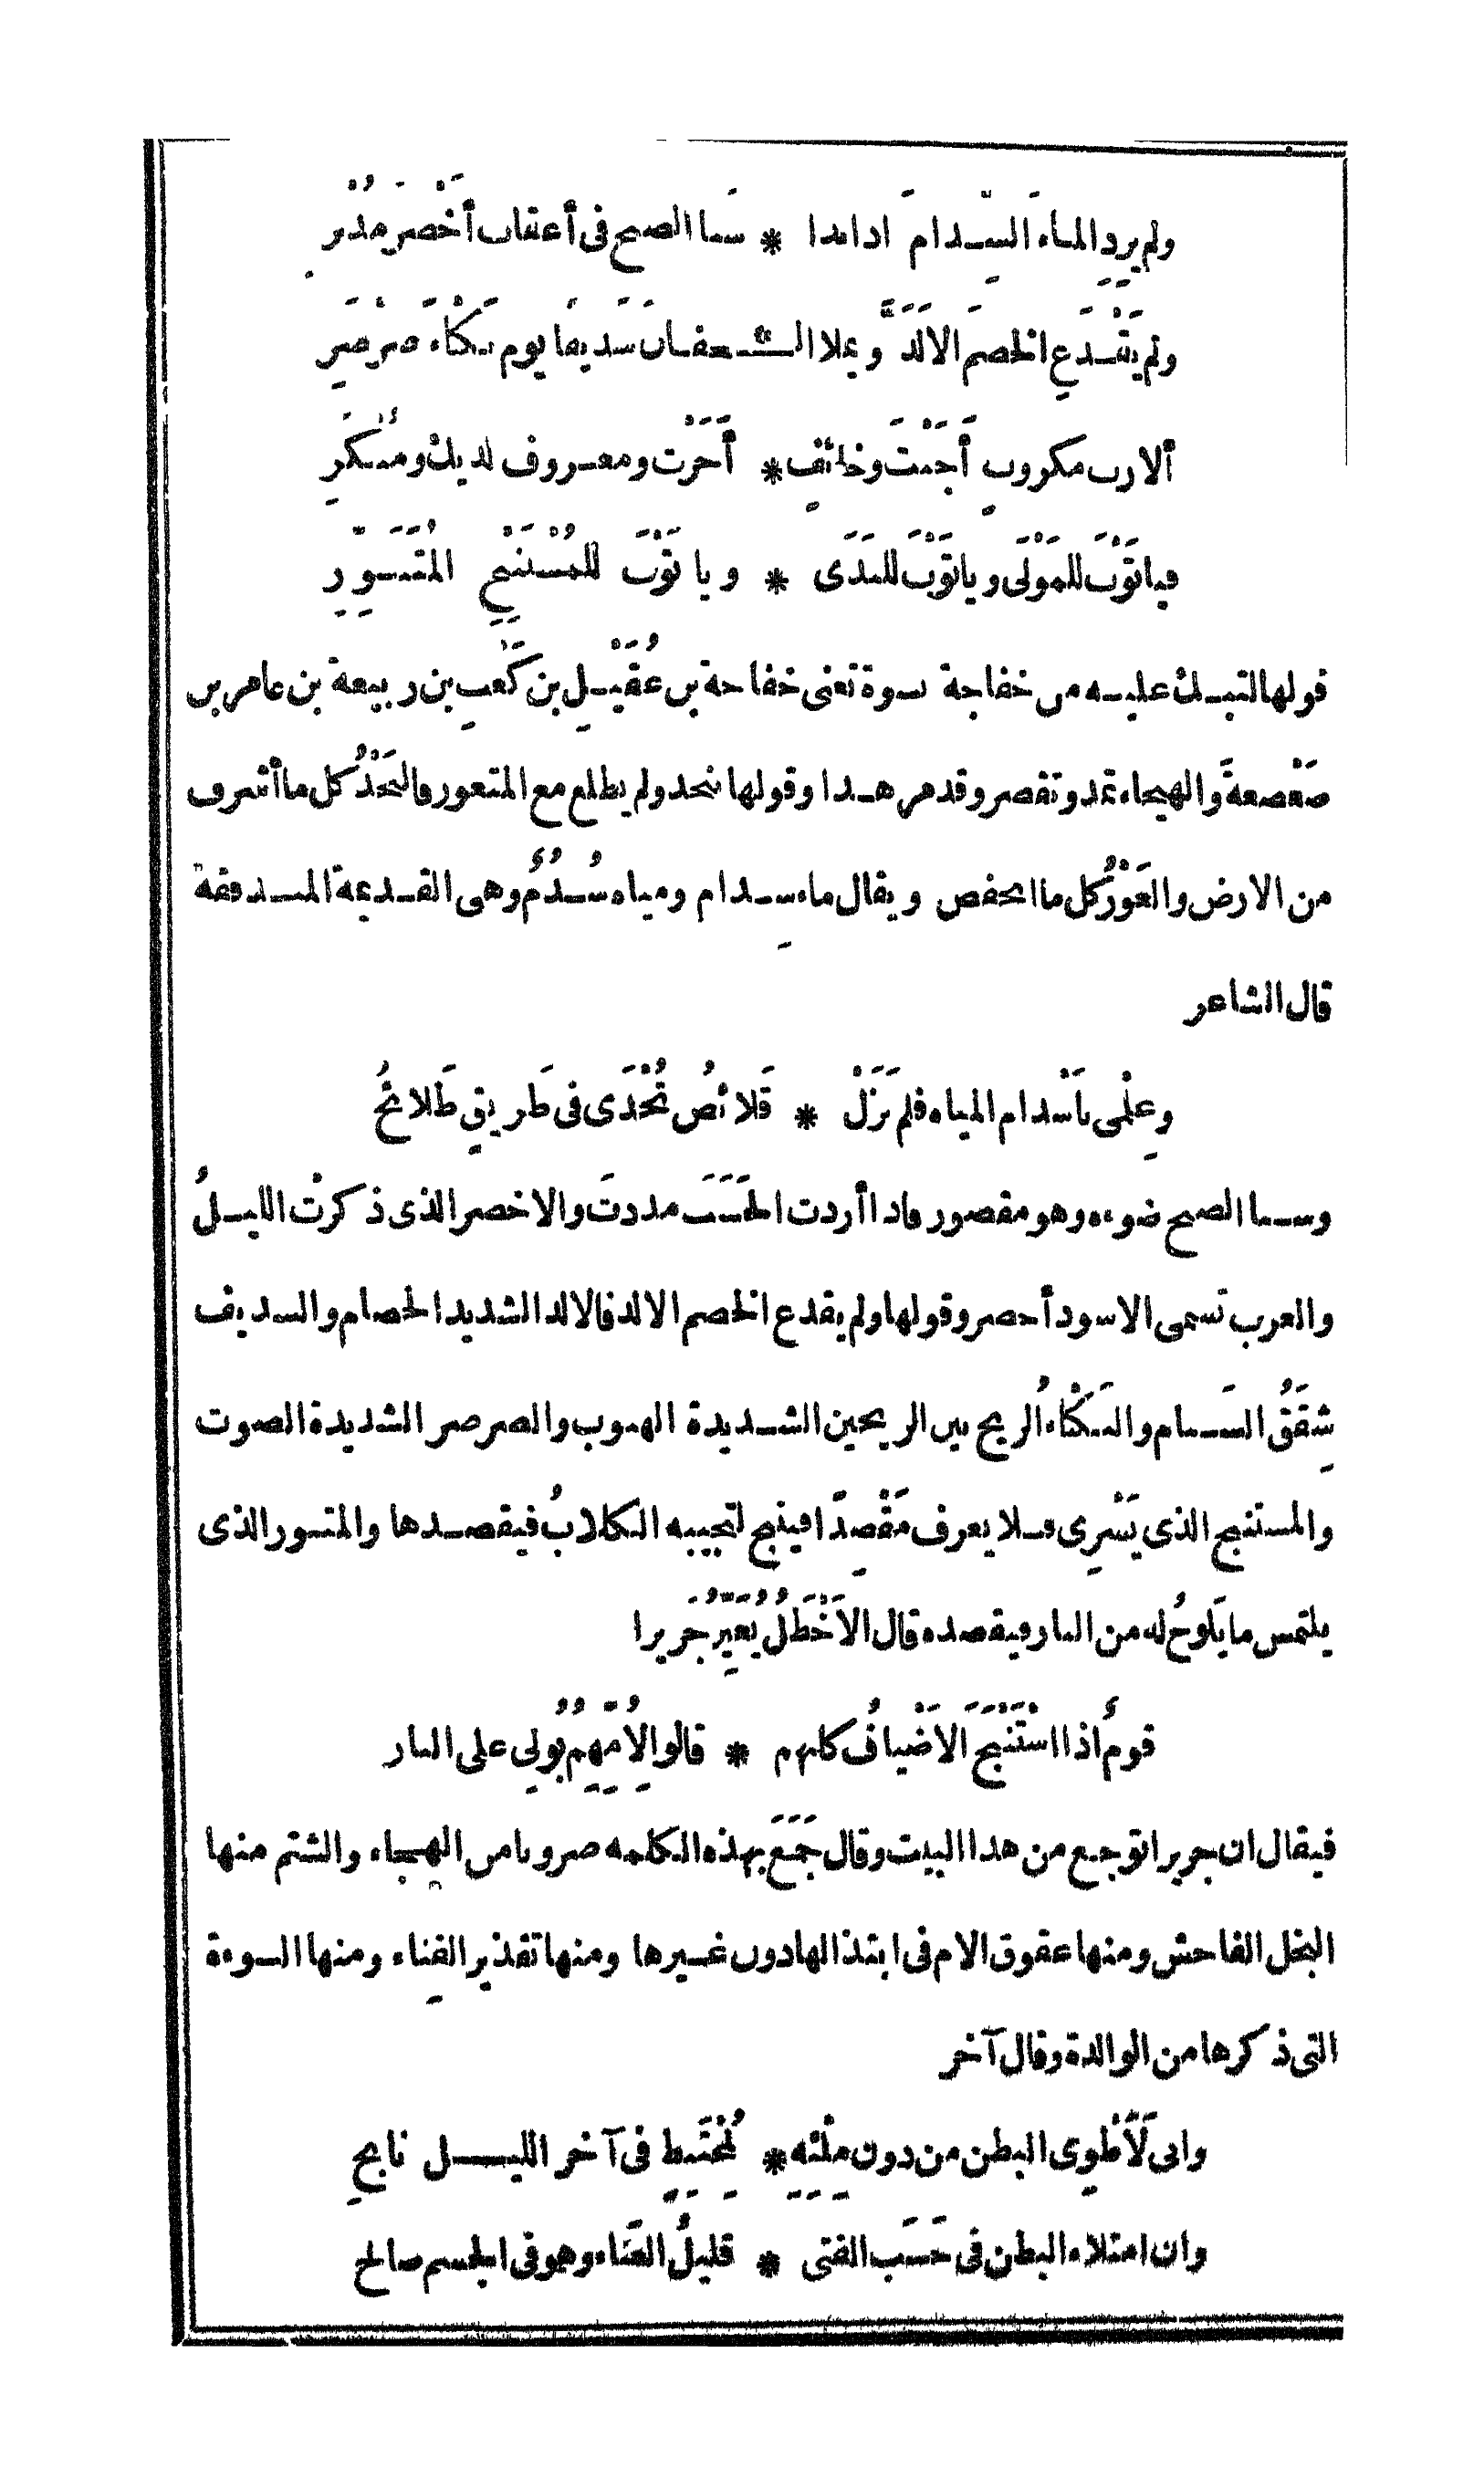 ولم يرد الماءَ السِّدامَ اذا بدا * سَنا الصبح فى أعقاب أَخْضَرَ مُدْبِرِ
ولم يَقْدَعِ الخصمَ الاَلَدَّ ويملا الـ ـجفان سَديفا يوم نَكْباءَ صَرْصَرِ
ألا رب مكروبٍ أَجَبْتَ وخائفٍ * أَجَرْت ومعروف لديك ومُنْكَرِ
فيا تَوْبَ للمَوْلَى ويا تَوْبَ للنَدَى * ويا تَوْبَ للمُسْتَنْبِحِ المُتَنَوِّرِ
قولها لتبك عليه من خفاجة نسوة تعنى خفاجة بن عُقَيْلِ بن كَعْبِ بن ربيعة بن عامر بن
صَعْصعةَ والهيجاء تمد وتقصر وقد مر هذا وقولها بنجد ولم يطلع مع المتغور فالنَجْدُ كل ما أشرف
من الارض والغَوْرُ كل ما انخفض ويقال ماء سِدام ومياه سُدُمٌ وهى القديمة المندفقة
قال الشاعر
وعِلْمى بأَسْدام المياه فلم تَزَلْ * قَلائصُ تُحْدَى فى طَريقٍ طَلائحُ
وسنا الصبح ضوءه وهو مقصور فاذا أردت الحَسَبَ مددتَ والاخضر الذى ذكرتْ الليلُ
والعرب تسمى الاسود أخضر وقولها ولم يقدع الخصم الالد فالالد الشديد الخصام والسديف
شِقَقُ السَنام والنَكْباءُ الريح بين الريحين الشديدة الهبوب والصرصر الشديدة الصوت
والمستنبح الذى يَسْرِى فلا يعرف مَقْصِدًا فينبح لتجيبه الكلابُ فيقصدها والمتنور الذى
يلتمس ما يَلوحُ له من النار فيقصده قال الاَخْطَلُ يُعَيِّرُ جَريرا
قومٌ اذا اسْتَنْبَحَ الاَضْيافُ كلبهم * قالوا لِاُمِّهِمُ بُولِى على النار
فيقال ان جريرا توجع من هذا البيت وقال جَمَعَ بهذه الكلمة ضروبا من الهجاء والشتم منها
البخل الفاحش ومنها عقوق الام فى ابتذالها دون غيرها ومنها تقذير الفِناء ومنها السوءة
التى ذكرها من الوالدة وقال آخر
وانى لَاَطْوِى البطن من دون مِلْئِهِ * لمُخْتَبِطٍ فى آخر الليل نابحِ
وان امتلاء البطن فى حَسَب الفتى * قليلُ الغَناء وهو فى الجسم صالح